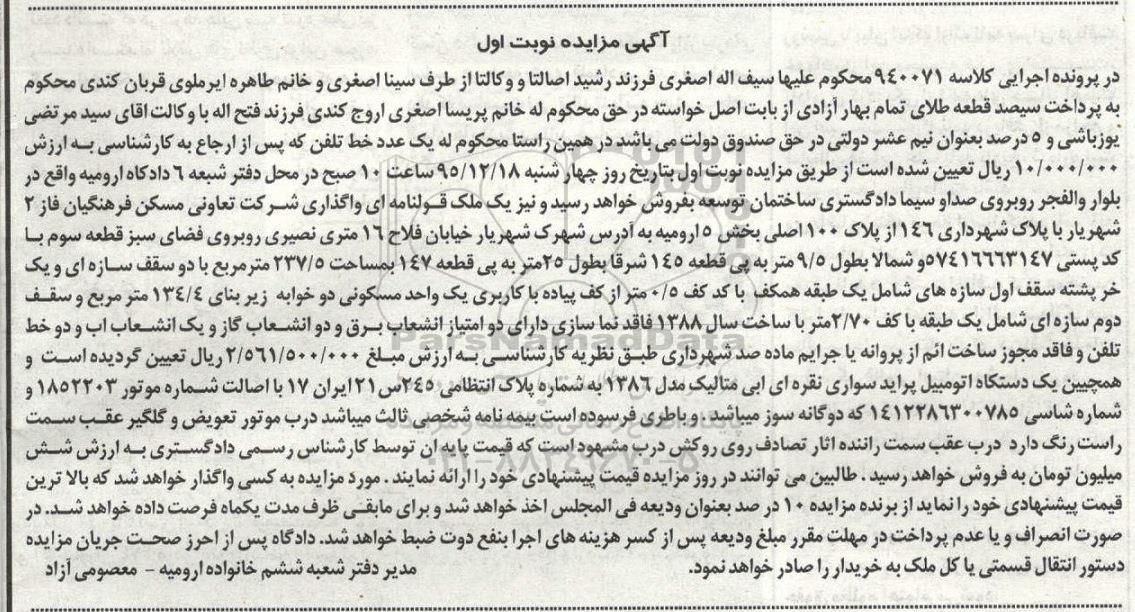 آگهی مزایده نوبت اول
در پرونده اجرایی کلاسه ۹۴۰۰۷۱ محکوم علیها سیف اله اصغری فرزند رشید اصالتا و وکالتا از طرف سینا اصغری و خانم طاهره ایرملوی قربان کندی محکوم
به پرداخت سیصد قطعه طلای تمام بهار آزادی از بابت اصل خواسته در حق محکوم له خانم پریسا اصغری اروج کندی فرزند فتح اله با وکالت اقای سید مرتضی
یوزباشی و ۵ درصد بعنوان نیم عشر دولتی در حق صندوق دولت می باشد در همین راستا محکوم له یک عدد خط تلفن که پس از ارجاع به کارشناسی به ارزش
۱۰/۰۰۰/۰۰۰ ریال تعیین شده است از طریق مزایده نوبت اول بتاریخ روز چهار شنبه ۹۵/۱۲/۱۸ ساعت ۱۰ صبح در محل دفتر شبعه ۶ دادگاه ارومیه واقع در
بلوار والفجر روبروی صداو سیما دادگستری ساختمان توسعه بفروش خواهد رسید و نیز یک ملک قولنامه ای واگذاری شرکت تعاونی مسکن فرهنگیان فاز ۲
شهریار با پلاک شهرداری ۱۴۶ از پلاک ۱۰۰ اصلی بخش ۵ ارومیه به آدرس شهرک شهریار خیابان فلاح ۱۶ متری نصیری روبروی فضای سبز قطعه سوم با
کد پستی ۵۷۴۱۶۶۶۳۱۴۷ و شمالا بطول ۹/۵ متر به پی قطعه ۱۴۵ شرقا بطول ۲۵ متر به پی قطعه ۱۴۷ بمساحت ۲۳۷/۵ متر مربع با دو سقف سازه ای و یک
خر پشته سقف اول سازه های شامل یک طبقه همکف با کد کف ۰/۵ متر از کف پیاده با کاربری یک واحد مسکونی دو خوابه زیر بنای ۱۳۴/۴ متر مربع و سقف
دوم سازه ای شامل یک طبقه با کف ۲/۷۰ متر با ساخت سال ۱۳۸۸ فاقد نما سازی دارای دو امتیاز انشعاب برق و دو انشعاب گاز و یک انشعاب اب و دو خط
تلفن و فاقد مجوز ساخت ائم از پروانه یا جرایم ماده صد شهرداری طبق نظریه کارشناسی به ارزش مبلغ ۲/۵۶۱/۵۰۰/۰۰۰ ریال تعیین گردیده است و
همچیین یک دستگاه اتومبیل پراید سواری نقره ای ابی متالیک مدل ۱۳۸۶ به شماره پلاک انتظامی ۲۴۵س۲۱ ایران ۱۷ با اصالت شماره موتور ۱۸۵۲۲۰۳ و
شماره شاسی ۱۴۱۲۲۸۶۳۰۰۷۸۵ که دوگانه سوز میباشد و باطری فرسوده است بیمه نامه شخصی ثالث میباشد درب موتور تعویض و گلگیر عقب سمت
راست رنگ دارد درب عقب سمت راننده اثار تصادف روی روکش درب مشهود است که قیمت پایه ان توسط کارشناس رسمی دادگستری به ارزش شش
میلیون تومان به فروش خواهد رسید . طالبین می توانند در روز مزایده قیمت پیشنهادی خود را ارائه نمایند . مورد مزایده به کسی واگذار خواهد شد که بالا ترین
قیمت پیشنهادی خود را نماید از برنده مزایده ۱۰ در صد بعنوان ودیعه فی المجلس اخذ خواهد شد و برای مابقی ظرف مدت یکماه فرصت داده خواهد شد. در
صورت انصراف و یا عدم پرداخت در مهلت مقرر مبلغ ودیعه پس از کسر هزینه های اجرا بنفع دوت ضبط خواهد شد. دادگاه پس از احرز صحت جریان مزایده
دستور انتقال قسمتی یا کل ملک به خریدار را صادر خواهد نمود.
مدیر دفتر شعبه ششم خانواده ارومیه - معصومی آزاد
ParsNamadData